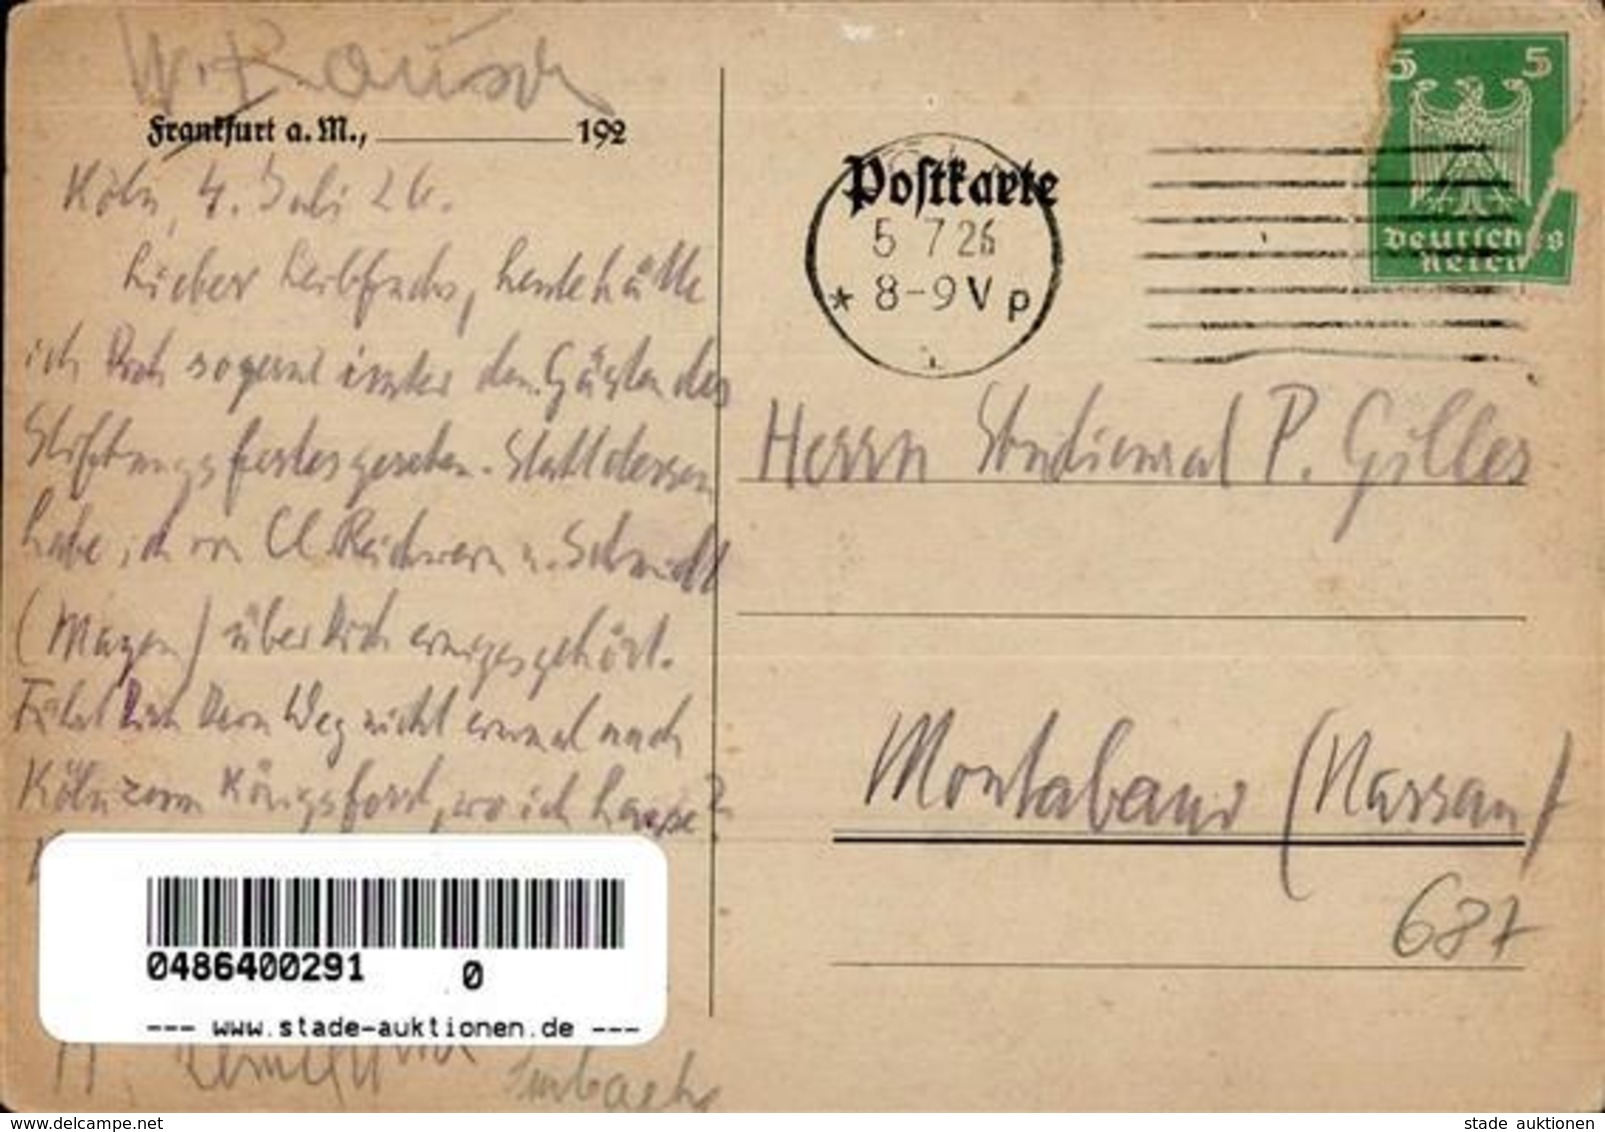 W. Rausch
Frankfurt a. M., 192
Köln, 4. Juli 26.
Lieber Leibfuchs, heute hätte
ich Dich so gern unter den Gästen des
Stiftungsfestes gesehen. Statt dessen
habe ich von Cl. Reichwein u. Schmidt
(Mayen) über Dich einiges gehört.
Führt Dich Dein Weg nicht einmal nach
Köln zum Königsforst, wo ich hause?
Postkarte
5 7 26
* 8-9 V p
5 5
Deutsches
Reich
Herrn Studienrat P. Gilles
Montabaur (Nassau)
687
0486400291 0
--- www.stade-auktionen.de ---
www.delcampe.net
stade auktionen